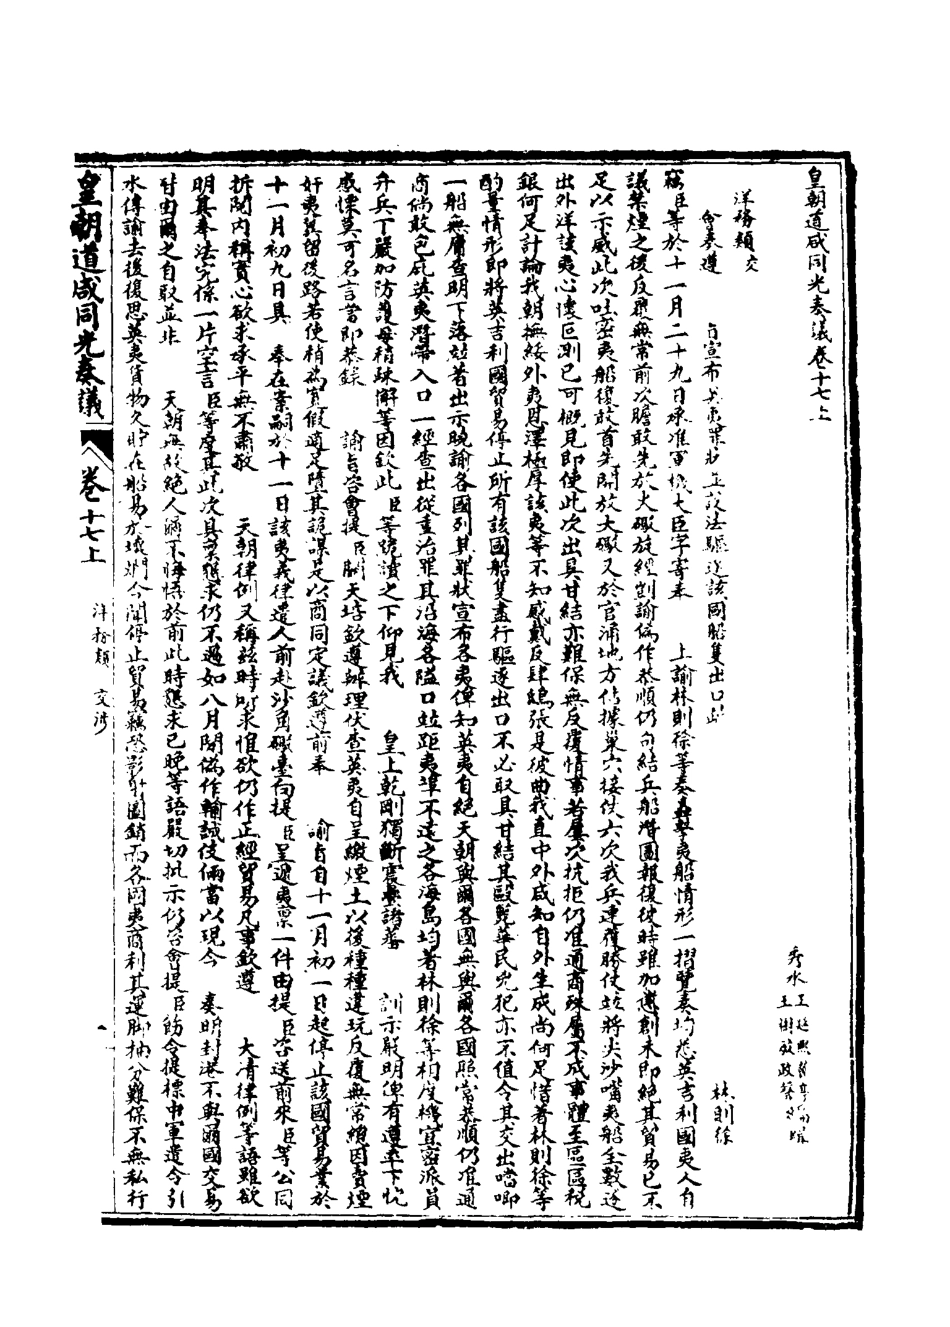 皇朝道咸同光奏議卷十七上
秀水 王延熙 王樹敏 政 輯
洋務類 交
會奏遵 旨宣布英夷罪狀並設法驅逐該國船隻出口 林則徐
竊臣等於十一月二十九日承准軍機大臣字寄奉 上諭林則徐等奏轟擊夷船情形一摺覽奏均悉英吉利國夷人自
議禁煙之後反覆無常前次膽敢先放火礮旋經剴諭偽作恭順仍勾結兵船潛圖報復彼時雖加懲創未即絕其貿易已不
足以示威此次吐嘧夷船復敢首先開放大礮又於官涌地方佔據巢穴接仗六次我兵連獲勝仗並將尖沙嘴夷船全數逐
出外洋該夷心懷叵測已可概見即使此次出具甘結亦難保無反覆情事若屢次抗拒仍准通商殊屬不成事體至區區稅
銀何足計論我朝撫綏外夷恩澤極厚該夷等不知感戴反肆鴟張是彼曲我直中外咸知自外生成尚何足惜著林則徐等
酌量情形即將英吉利國貿易停止所有該國船隻盡行驅逐出口不必取具甘結其毆斃華民兇犯亦不值令其交出噹啷
一船無庸查明下落並著出示曉諭各國列其罪狀宣布各夷俾知英夷自絕天朝與爾各國無與爾各國照常恭順仍准通
商倘敢包庇英夷潛帶入口一經查出從重治罪其沿海各隘口並距夷埠不遠之各海島均著林則徐等相度機宜密派員
弁兵丁嚴加防護毋稍疎懈等因欽此 臣等跪讀之下仰見我 皇上乾剛獨斷震疊諸番 訓示嚴明俾有遵率下忱
感慄莫可名言當即恭錄 諭旨咨會提臣關天培欽遵辦理伏查英夷自呈繳煙土以後種種違玩反覆無常總因賣煙
奸夷冀留後路若使稍為寬假適足墮其詭謀是以商同定議欽遵前奉 諭旨自十一月初一日起停止該國貿易業於
十一月初九日具 奏在案嗣於十一日該夷義律遣人前赴沙角礮臺向提臣呈遞夷稟一件由提臣咨送前來臣等公同
拆閱內稱實心欲求承平無不肅敬 天朝律例又稱茲時所求惟欲仍作正經貿易凡事欽遵 大清律例等語雖欲
明其奉法究係一片空言臣等查其此次具稟懇求仍不過如八月間偽作輸誠伎倆當以現今 奏明封港不與爾國交易
咎由爾之自取並非 天朝無故絕人爾不悔悟於前此時懇求已晚等語嚴切批示仍咨會提臣飭令提標中軍遣令引
水傳諭去後復思英夷貨物久貯在船易於壞爛今聞停止貿易竊恐影射圖銷而各國夷商利其運腳抽分難保不無私行
皇朝道咸同光奏議 卷十七上 洋務類 交涉 一